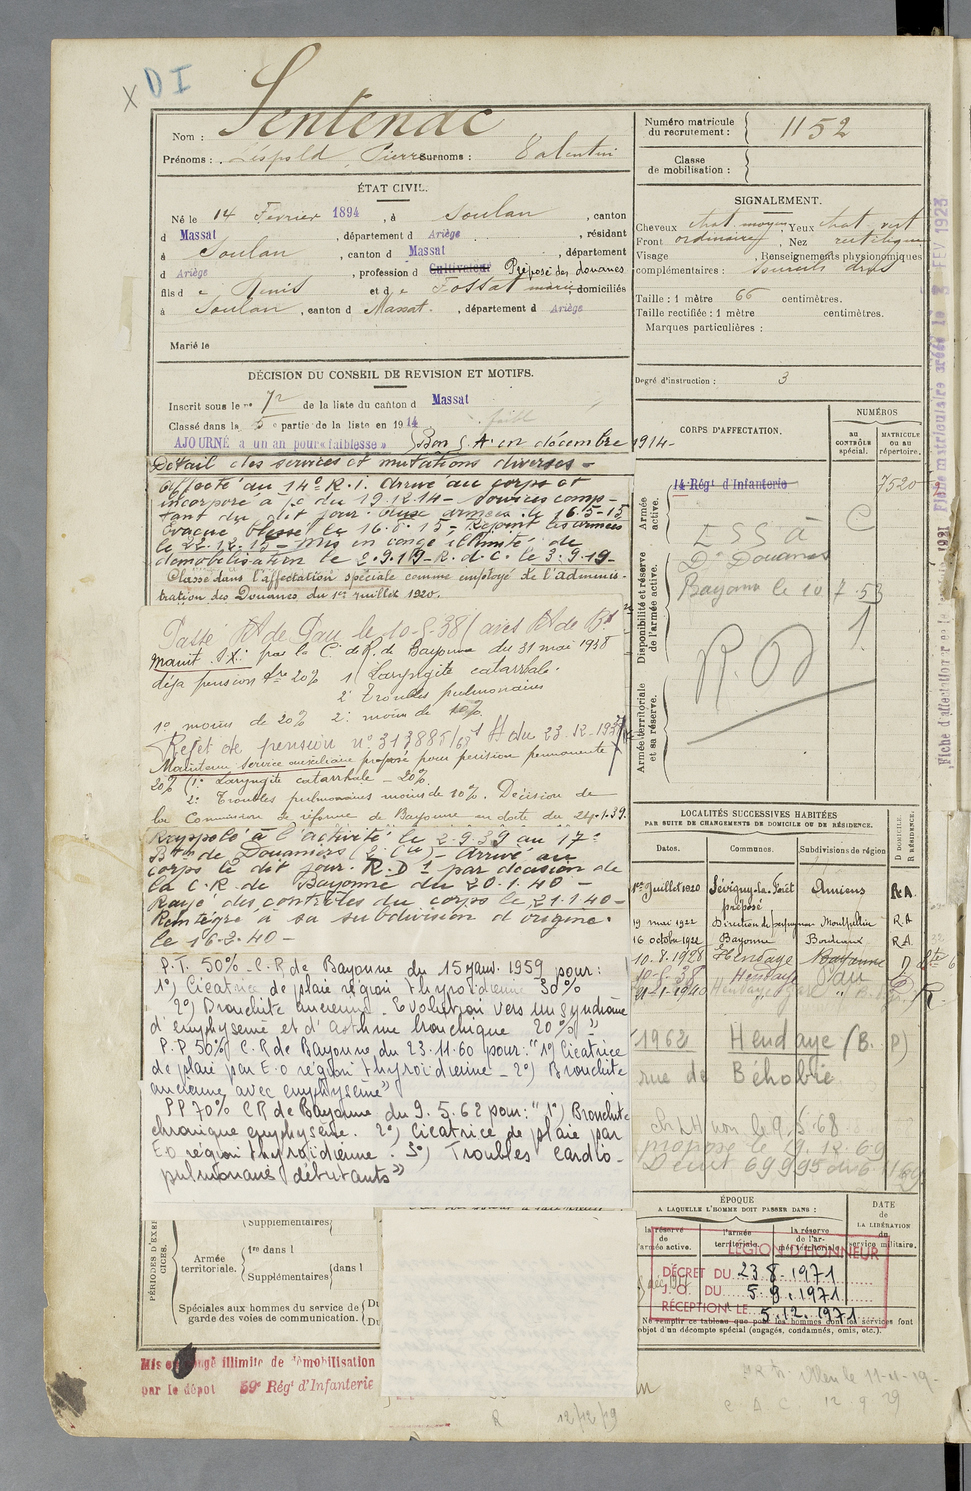 X DI
Nom : Sentenac
Prénoms : Léopold Pierre Surnoms : Valentin
ÉTAT CIVIL.
Né le 14 Février 1894, à Soulan, canton
d Massat, département d Ariège, résidant
à Soulan, canton d Massat, département
d Ariège, profession d Cultivateur Préposé des douanes
fils de Denis et de Fossat marie domiciliés
à Soulan, canton d Massat., département d Ariège
Marié le
DÉCISION DU CONSEIL DE REVISION ET MOTIFS.
Inscrit sous le n° 72 de la liste du canton d Massat
Classé dans la 5e partie de la liste en 1914
AJOURNÉ à un an pour « faiblesse » Bon S.A. en décembre 1914-
Détail des services et mutations diverses -
Affecté au 14e R.I. Arrivé au corps et
incorporé à /c du 19.12.14 - Services comp-
tant du dit jour. aux armées le 16-5-15
Evacué blessé le 16.6.15 - Rejoint les armées
le 22.12.15 - Mis en congé illimité de
démobilisation le 2.9.19 - R.d.C. le 3.9.19 -
Classé dans l'affectation spéciale comme employé de l'adminis-
tration des Douanes du 1er juillet 1920.
Passé Bt de Pau le 10-5.38 (avis Bt de Bx
Maint. S.X. par la C. de R. de Bayonne du 31 mai 1938
déjà pension 20% 1( Laryngite catarrhale.
2° Troubles pulmonaires
1° moins de 20% 2: moins de 10%.
Rejet de pension n° 313885/63 du 23.12.193
Maintenu service auxiliaire proposé pour pension permanente
20% (1° Laryngite catarrhale - 20%.
2° Troubles pulmonaires moins de 10%. Décision de
la Commission de réforme de Bayonne en date du 24.1.39.
Rappelé à l'activité le 2.9.39 au 17e
Btn de Douaniers (2e Cie) - Arrivé au
corps le dit jour. R.D 1 par décision de
la C.R. de Bayonne du 20.1.40 -
Rayé des contrôles du corps le 21.1.40 -
Réintégré à sa subdivision d'origine.
le 16-2-40 -
P.T. 50% - C.R. de Bayonne du 15 janv. 1959 pour :
1°) Cicatrice de plaie région thyroïdienne 30 %
2°) Bronchite ancienne. Evolution vers un syndrome
d'emphysème et d'asthme bronchique 20% »
P.P 50% C.R de Bayonne du 23.11.60 pour : "1°) Cicatrice
de plaie par E.o région thyroïdienne - 2°) Bronchite
ancienne avec emphysème"
PP 70% CR de Bayonne du 9.5.62 pour : "1°) Bronchite
chronique emphysème. 2°) Cicatrice de plaie par
E.o région thyroïdienne. 3°) Troubles cardio-
pulmonaires débutants"
PÉRIODES D'EXERCICES.
Supplémentaires
Armée territoriale.
1re dans l
Supplémentaires
dans l
Spéciales aux hommes du service de
garde des voies de communication.
Du
Du
Mis en congé illimité de démobilisation
par le dépôt 59e Régt d'Infanterie
R 12/12/19
Numéro matricule du recrutement : 1152
Classe de mobilisation :
SIGNALEMENT.
Cheveux chat. moyen Yeux chat. vert
Front ordinaire, Nez rectiligne
Visage , Renseignements physionomiques
complémentaires : Sourcils droits
Taille : 1 mètre 66 centimètres.
Taille rectifiée : 1 mètre centimètres.
Marques particulières :
Degré d'instruction : 3
CORPS D'AFFECTATION.
NUMÉROS
au CONTRÔLE spécial.
MATRICULE ou au répertoire.
Armée active.
14 Régt d'Infanterie
7520
Disponibilité et réserve de l'armée active.
ESS à
Dn Douanes
Bayonne le 10 7.53
R.D 1.
Armée territoriale et sa réserve.
LOCALITÉS SUCCESSIVES HABITÉES
PAR SUITE DE CHANGEMENTS DE DOMICILE OU DE RÉSIDENCE.
Dates. Communes. Subdivisions de région D DOMICILE. R RÉSIDENCE.
1er Juillet 1920 Sévigny-la-Forêt préposé Amiens R.A.
19 mai 1922 Direction de perpignan Montpellier R.A
16 octobre 1922 Bayonne Bordeaux R.A.
10.8.1928 Hendaye Bayonne D
10-5.38 Hendaye Pau D
21-1-1940 Hendaye gare " R.
1962 Hendaye (B.P)
rue de Béhobie
ch LH non le 9.5.68
proposé le 19.12.69
ÉPOQUE
A LAQUELLE L'HOMME DOIT PASSER DANS :
la réserve de l'armée active.
l'armée territoriale.
la réserve de l'armée territoriale.
DATE de LA LIBÉRATION du service militaire.
LEGION D'HONNEUR
DÉCRET DU 23.8.1971
J.O. DU 5.9.1971
RÉCEPTION LE 5.12.1971
Ne remplir ce tableau que pour les hommes dont les services font
objet d'un décompte spécial (engagés, condamnés, omis, etc.).
C A C 12 9 29
Fiche matriculaire créée le 3 FEV 1923
Fiche d'affectation